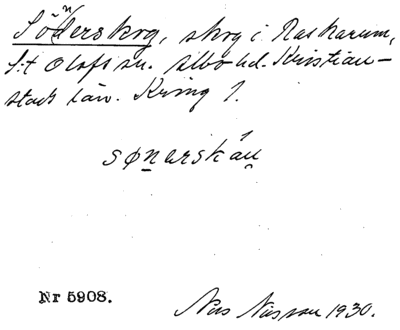 Söderskog, skog i Raskarum,
S:t Olofs sn. Albo hd. Kristian-
stads län. Kring 1.
sønarskåu
Nr 5908.
Nils Nilsson 1930.